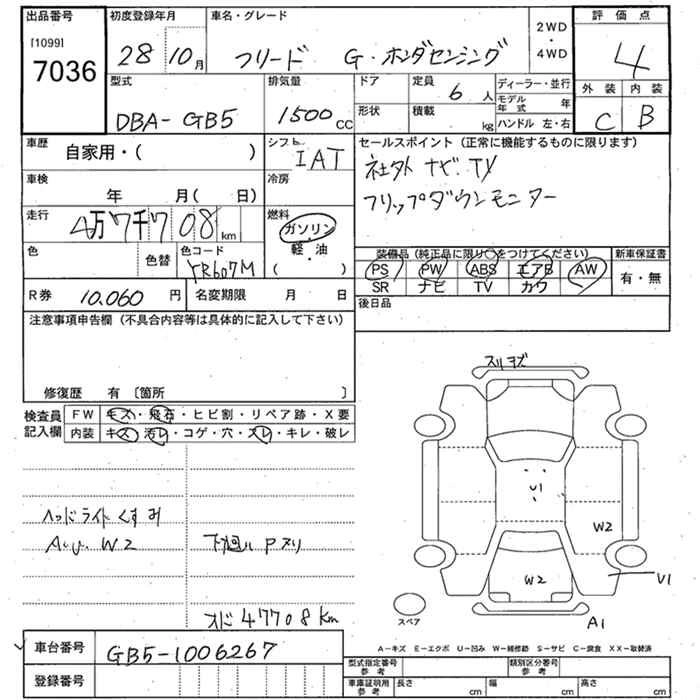 出品番号 初度登録年月 車名・グレード 2WD ・ 4WD 評価点
[1099]
7036 28 10月 フリード G・ホンダセンシング 4
型式 排気量 ドア 定員 6 人 ディーラー・並行 外装 内装
モデル年式 年
DBA-GB5 1500 CC 形状 積載 kg ハンドル 左・右 C B
車歴 自家用・( ) シフト IAT セールスポイント(正常に機能するものに限ります)
社外ナビ・TV
車検 年 月( 日) 冷房
フリップダウンモニター
走行 4万7千7 08 km 燃料 ガソリン・軽・油 ( )
色 色替 色コード YR607M
装備品(純正品に限り○をつけてください) 新車保証書
PS PW ABS エアB AW 有・無
SR ナビ TV カワ
R券 10,060 円 名変期限 月 日 後日品
注意事項申告欄(不具合内容等は具体的に記入して下さい)
修復歴 有 〔箇所 〕
検査員記入欄 FW キズ・飛石・ヒビ割・リペア跡・X要
内装 キズ・汚レ・コゲ・穴・スレ・キレ・破レ
スリキズ
U1
W2
W2
U1
A1
スペア
ヘッドライトくすみ
A・U・W2 下廻りPスリ
オド47708km
A-キズ E-エクボ U-凹み W-補修跡 S-サビ C-腐食 XX-取替済
車台番号 GB5-1006267
登録番号
型式指定番号 参考 類別区分番号 参考
車庫証明用 参考 長さ cm 幅 cm 高さ cm